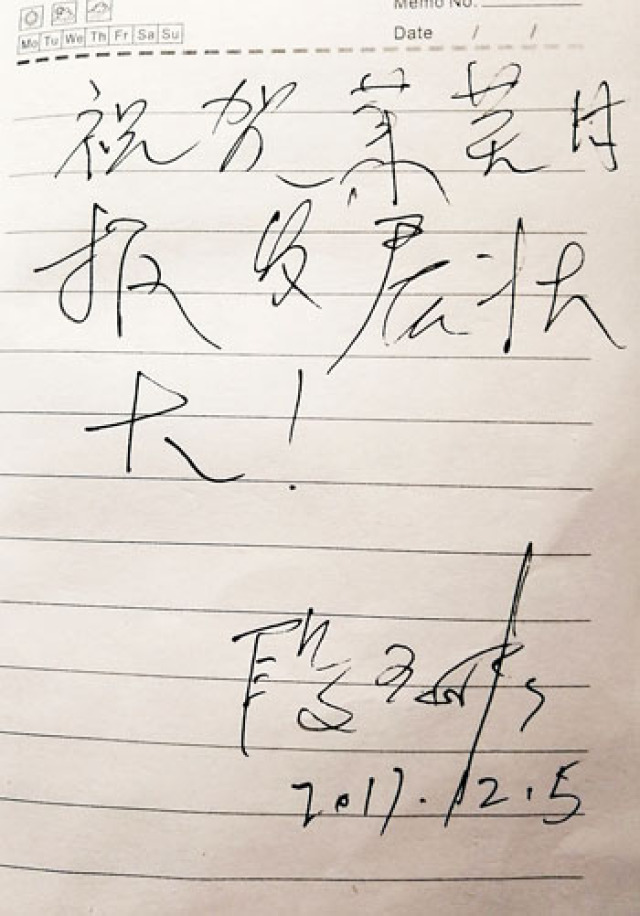 Memo No.
Mo Tu We Th Fr Sa Su
Date / /
祝贺莱芜日
报发展壮
大!
段
2017.12.5